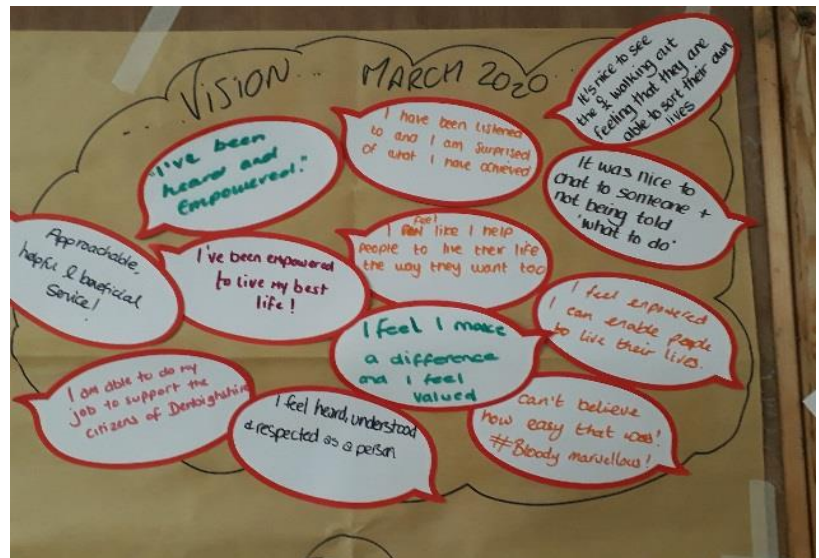 ... VISION... MARCH 2020...
It's nice to see
the & walking out
feeling that they are
able to sort their own
lives
I have been listened
to and I am surprised
of what I have achieved
"I've been
heard and
Empowered."
It was nice to
chat to someone +
not being told
'what to do'
Approachable,
helpful & beneficial
Service!
I've been empowered
to live my best
life!
feel
I like I help
people to live their life
the way they want too
I feel empowered
I can enable people
to live their lives.
I feel I make
a difference
and I feel
valued
I am able to do my
job to support the
citizens of Denbighshire
I feel heard, understood
& respected as a person
can't believe
how easy that was!
#Bloody marvellous!